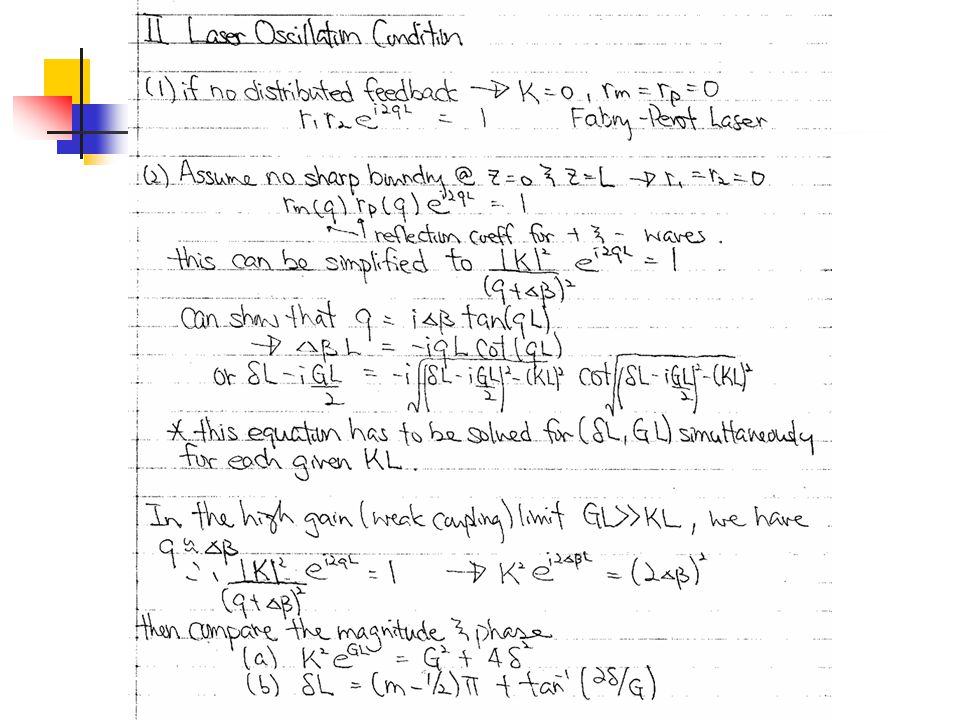 II Laser Oscillation Condition
(1) if no distributed feedback → K=0, rm = rp = 0
r₁r₂e^{i2qL} = 1 Fabry-Perot Laser
(2) Assume no sharp boundry @ z=0 & z=L → r₁=r₂=0
rm(q) rp(q) e^{i2qL} = 1
reflection coeff for + & - waves.
this can be simplified to |K|²/(q+Δβ)² e^{i2qL} = 1
can show that q = iΔβ tan(qL)
→ ΔβL = -iqL cot(qL)
or δL - iGL/2 = -i√((δL-iGL/2)²-(KL)²) cot√((δL-iGL/2)²-(KL)²)
* this equation has to be solved for (δL, GL) simultaneously
for each given KL.
In the high gain (weak coupling) limit GL>>KL, we have
q ≈ Δβ
∴ |K|²/(q+Δβ)² e^{i2qL} = 1 → K² e^{i2ΔβL} = (2Δβ)²
then compare the magnitude & phase
(a) K² e^{GL} = G² + 4δ²
(b) δL = (m-1/2)π + tan⁻¹(2δ/G)